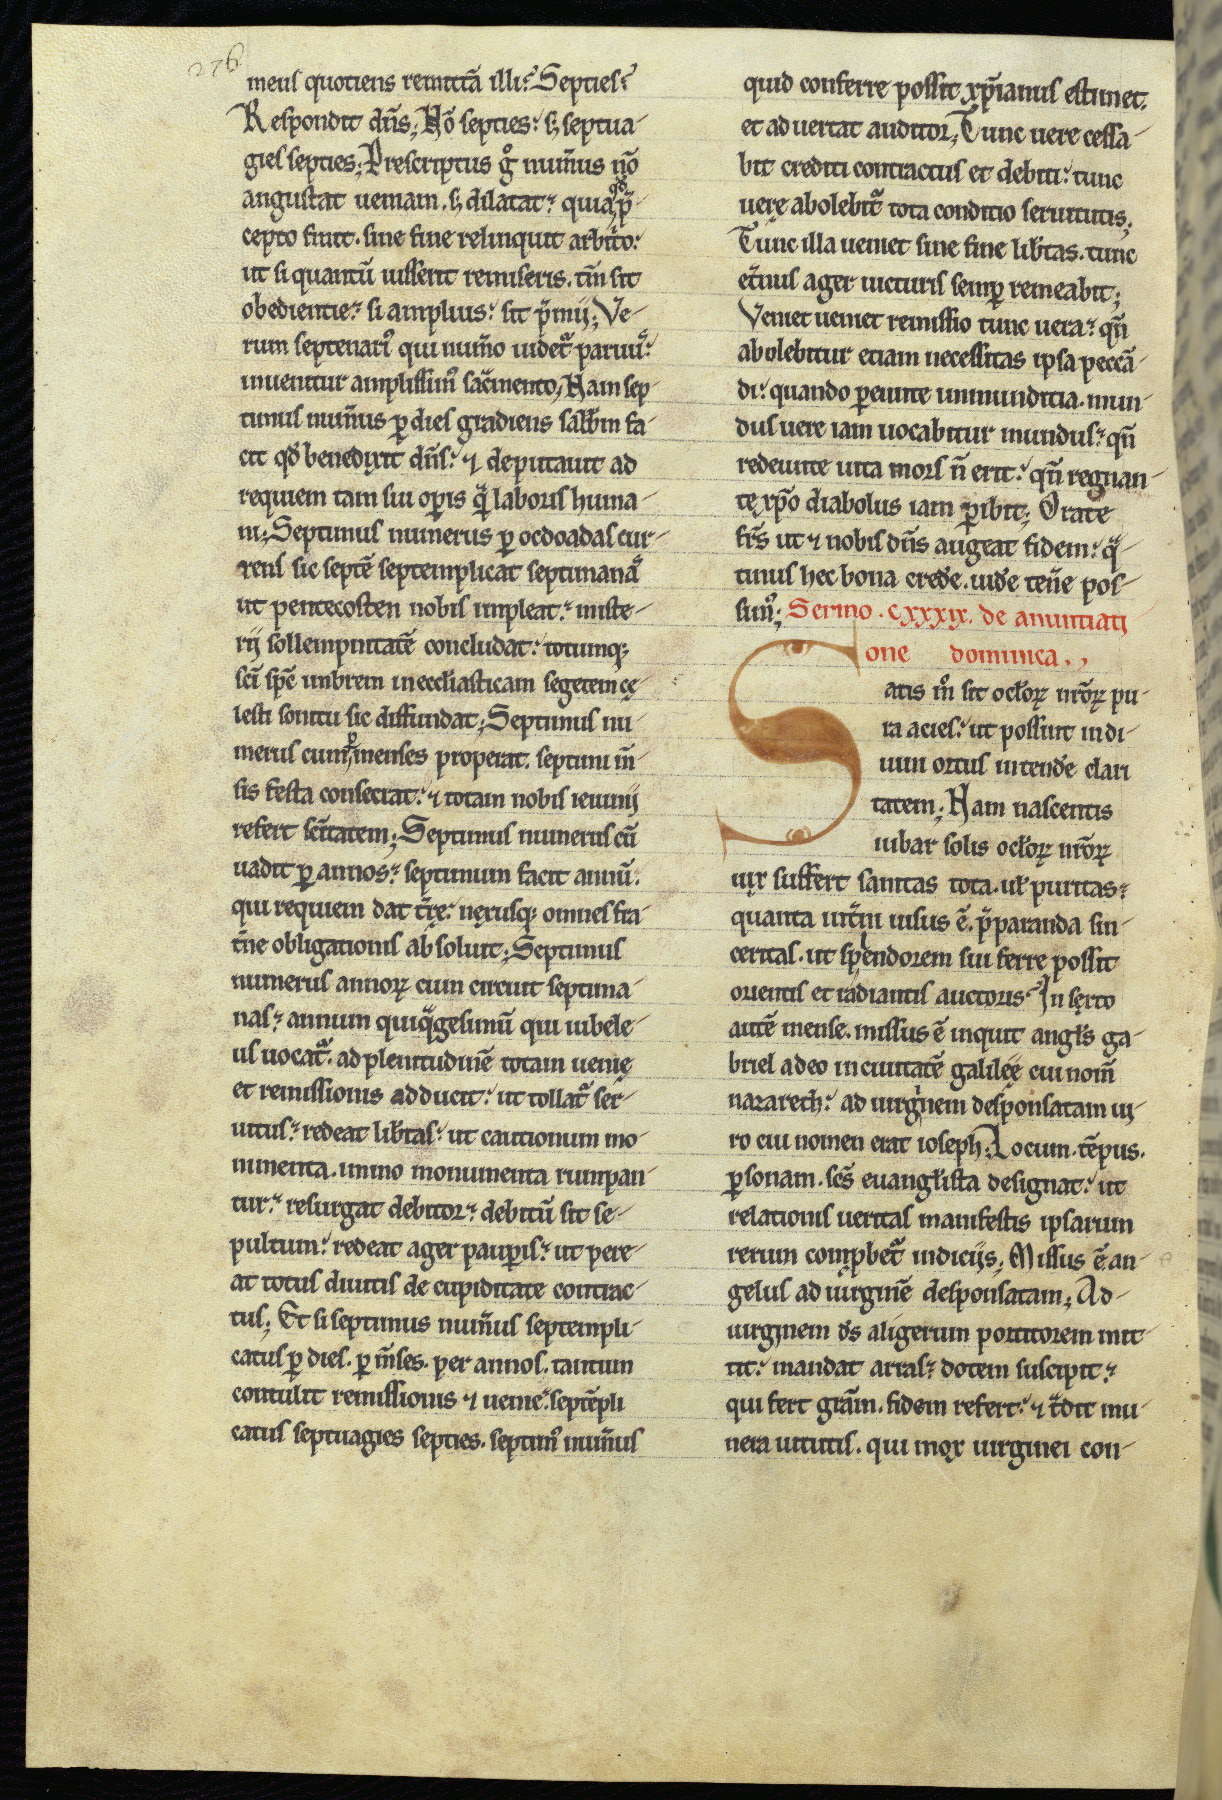 276
meus quotiens remittā illi? Septies?
Respondit dn̄s; Nō septies: s; septua-
gies septies; Prescriptus g° num̄us nō
angustat ueniam. s; dilatat: quia qd̄ p̄-
cepto finit. sine fine relinquit arbit̓o:
ut si quantū iusserit remiseris. tm̄ sit
obedientie: si amplius: sit p̄mij; Ve-
rum septenari᾿ qui num̄o uidet᷑ paruu᷑:
inuenitur amplissim᾿ sac̄mento; Nam sep-
timus num̄us ꝑ dies gradiens sabb̄m fa-
cit qd̄ benedixit dn̄s: ⁊ deputauit ad
requiem tam sui oꝑis qͣ laboris huma-
ni; Septimus numerus ꝑ ocdoadas cur-
rens sic septē septemplicat septimanaͣ
ut pentecosten nobis impleat: miste-
rij sollempnitatē concludat: totumq;
sc̄i sp̄c̄ imbrem in eccłiasticam segetem cę
lesti sonitu sic diffundat; Septimus nu-
merus cum ꝑ menses properat. septimi m̄
sis festa consecrat: ⁊ totam nobis ieiunij
refert sc̄itatem; Septimus numerus cū
uadit ꝑ annos: septimum facit annū.
qui requiem dat t̄rę: nexusq; omnes fra-
t̄ne obligationis absoluit; Septimus
numerus annoꝝ cum circuit septima-
nas: annum quiqͣgesimū qui iubele-
us uocat᷑. ad plenitudinē totam uenię
et remissionis adducit: ut tollat᷑ ser-
uitus: redeat lib̄tas: ut cautionum mo-
nimenta. immo monumenta rumpan-
tur: resurgat debitor: debitū sit se-
pultum: redeat ager pauꝑis: ut pere-
at totus diuitis de cupiditate contrac-
tus; Et si septimus num̄us septempli-
catus ꝑ dies. ꝑ m̄ses. per annos. tantum
contulit remissionis ⁊ uenie: septēpli
catus septuagies septies. septim᾿ num̄us
quid conferre possit xp̄ianus estimet.
et aduertat auditor; Tunc uere cessa-
bit crediti contractus et debiti: tunc
uere abolebit᷑ tota conditio seruitutis.
Tunc illa ueniet sine fine lib̄tas. tunc
et̄nus ager uicturis semꝑ remeabit;
Veniet ueniet remissio tunc uera: qn̄
abolebitur etiam necessitas ipsa peccā-
di: quando ꝑeunte inmunditia. mun-
dus uere iam uocabitur mundus: qn̄
redeunte uita mors n̄ erit: qn̄ regnan-
te xp̄o diabolus iam ꝑibit; Orate
fr̄s ut ⁊ nobis dn̄s augeat fidem: qͣ-
tinus hec bona crede. uide ten̄e pos-
sim᾿; Sermo .cxxxix. de anuntiati
one dominica.,,
Satis m̄ sit ocłoꝝ nr̄oꝝ pu-
ra acies: ut possint indi-
uini ortus intende clari
tatem; Nam nascentis
iubar solis ocłoꝝ nr̄oꝝ
uix suffert sanitas tota. uł puritas:
quanta int̄ni uisus ē. p̄paranda sin-
ceritas. ut splendorem sui ferre possit
orientis et radiantis auctoris? In sexto
autē mense. missus ē inquit angłs ga-
briel a deo in ciuitatē galilęę cui nom̄
nazareth: ad uirginem desponsatam ui-
ro cui nomen erat ioseph; Locum. tēpus.
ꝑsonam. sc̄s euangłista designat: ut
relationis ueritas manifestis ipsarum
rerum comꝓbet᷑ indicijs; Missus ē an-
gelus ad uirginē desponsatam; Ad
uirginem ds̄ aligerum portitorem mit-
tit: mandat arras: dotem suscipit:
qui fert grām. fidem refert: ⁊ tͣdit mu-
nera uirtutis. qui mox uirginei con-